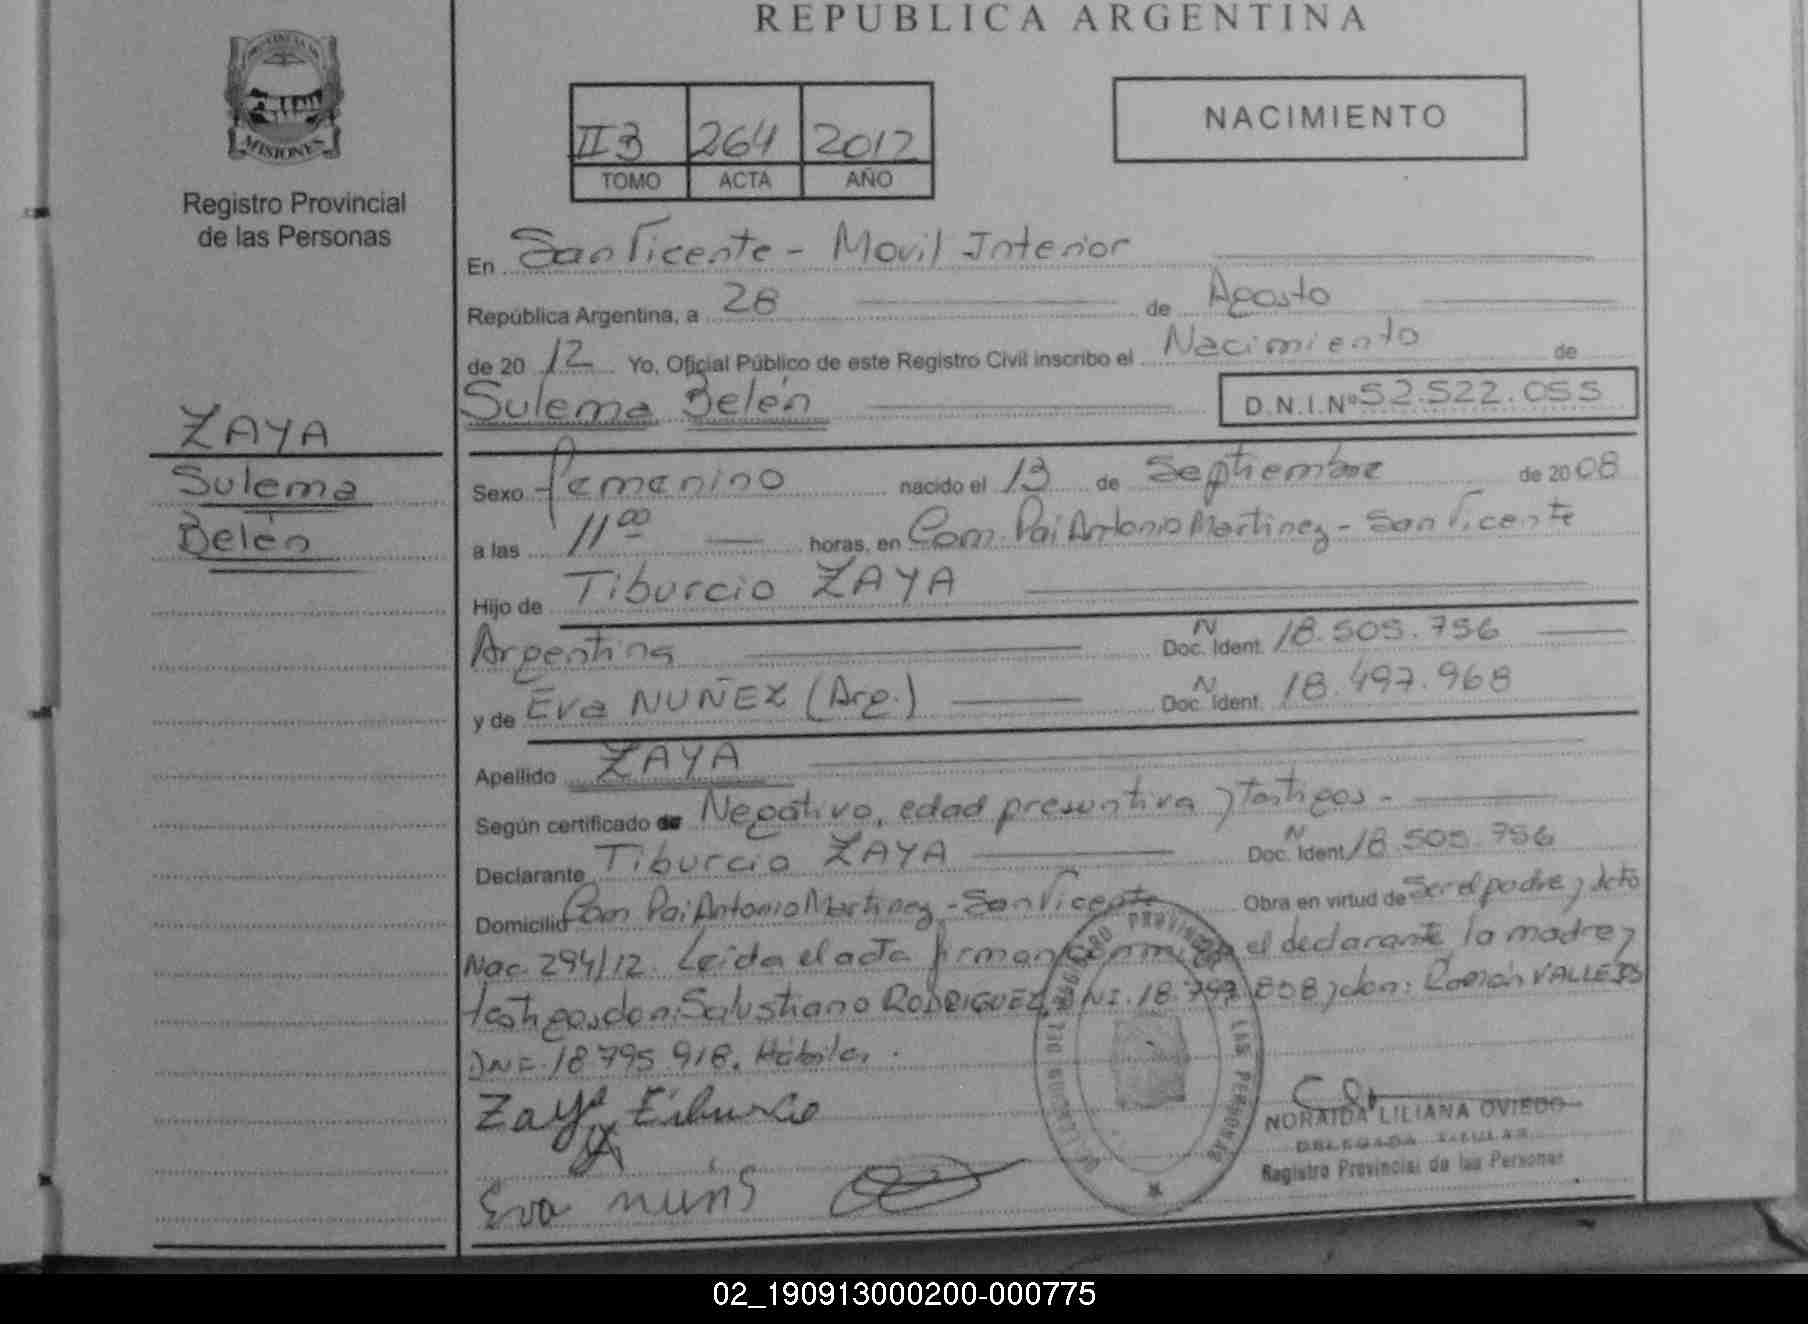 REPUBLICA ARGENTINA
PROVINCIA DE
MISIONES
Registro Provincial
de las Personas
II B 264 2012
TOMO ACTA AÑO
NACIMIENTO
En San Vicente - Movil Interior
República Argentina, a 28 de Agosto
de 2012 Yo, Oficial Público de este Registro Civil inscribo el Nacimiento de
Sulema Belén D.N.I.Nº 52.522.055
ZAYA
Sulema
Belén
Sexo femenino nacido el 13 de Septiembre de 2008
a las 11 00 horas, en Com. Pai Antonio Martinez - San Vicente
Hijo de Tiburcio ZAYA
Argentina N Doc. Ident. 18.505.756
y de Eva NUÑEZ (Arg.) N Doc. Ident. 18.497.968
Apellido ZAYA
Según certificado de Negativo, edad presuntiva y testigos -
Declarante Tiburcio ZAYA N Doc. Ident. 18.505.756
Domicilio Com Pai Antonio Martinez - San Vicente Obra en virtud de Ser el padre y Acto
Nac. 294/12. Leida el acta firman el declarante la madre y
testigos, don: Salustiano RODRIGUEZ, DNI. 18.797.808 y don: Ramón VALLEJOS
DNI. 18.795.918. Hábiles.
Zaya Tiburcio
Eva
NORAIDA LILIANA OVIEDO
DELEGADA TITULAR
Registro Provincial de las Personas
REGISTRO PROVINCIAL DE LAS PERSONAS
02_190913000200-000775